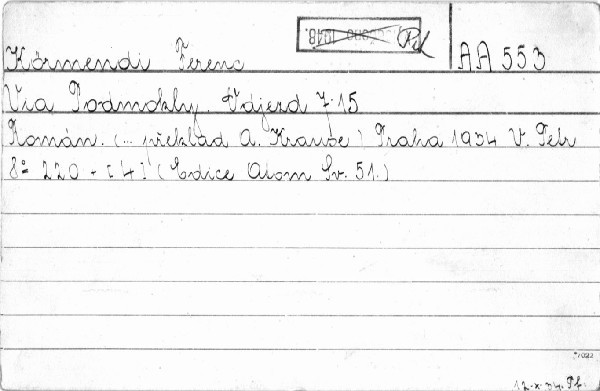 Körmendi Ferenc
AA 553
Via Podmokly. Odjezd 7.15
Román. (... překlad A. Kraus) Praha 1934 V. Petr
8° 220 - [4] (Edice Atom Sv. 51.)
12.X.34. Pf.